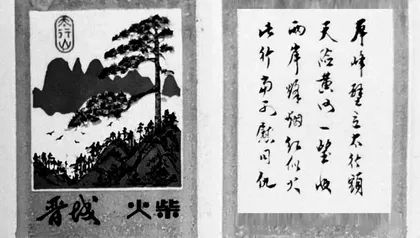 太行山
晋城 火柴
羣峰壁立太行頭
天險黄河一望收
兩岸烽烟红似火
此行當可慰同仇